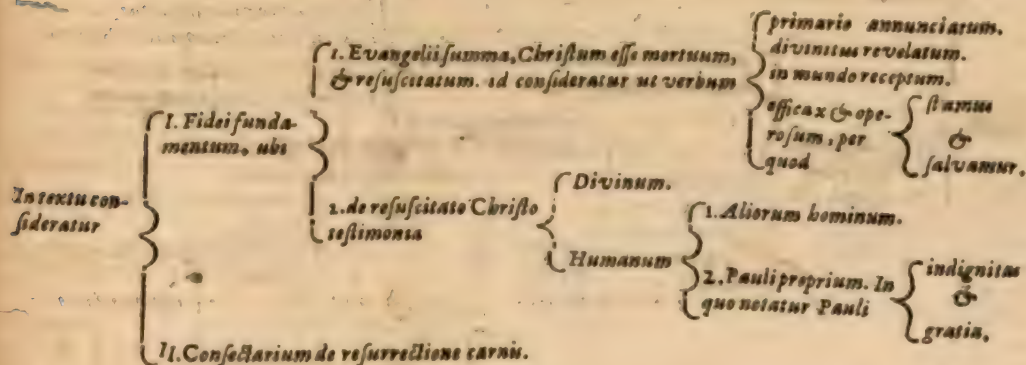 In textu con-
sideratur
I. Fidei funda-
mentum. ubi
1. Evangelii summa, Christum esse mortuum,
& resuscitatum. id consideratur ut verbum
primario annunciatum.
divinitus revelatum.
in mundo receptum.
efficax & ope-
rosum, per
quod
stamus
&
salvamur.
2. de resuscitato Christo
testimonia
Divinum.
Humanum
1. Aliorum hominum.
2. Pauli proprium. In
quo notatur Pauli
indignitas
&
gratia.
II. Consectarium de resurrectione carnis.